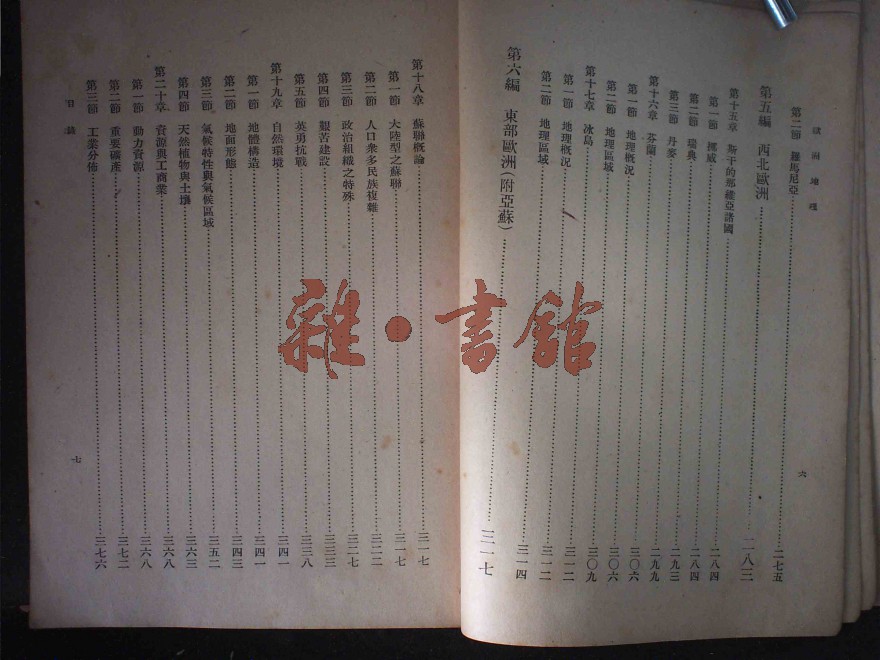 歐洲地理
第二節 羅馬尼亞 二七五
第五編 西北歐洲 二八三
第十五章 斯干的那維亞諸國 二八四
第一節 挪威 二八四
第二節 瑞典
第三節 丹麥 二九三
第十六章 芬蘭 二九九
第一節 地理概況 三〇六
第二節 地理區域 三〇六
第十七章 冰島 三〇九
第一節 地理概況 三一二
第二節 地理區域 三一二
三一四
第六編 東部歐洲(附亞蘇) 三一七
六
第十八章 蘇聯概論 三一七
第一節 大陸型之蘇聯 三一七
第二節 人口衆多民族複雜 三二二
第三節 政治組織之特殊 三二七
第四節 艱苦建設 三三三
第五節 英勇抗戰 三三八
第十九章 自然環境 三四一
第一節 地體構造 三四一
第二節 地面形態 三四三
第三節 氣候特性與氣候區域 三五二
第四節 天然植物與土壤 三六三
第二十章 資源與工商業 三六八
第一節 動力資源 三六八
第二節 重要礦產 三七二
第三節 工業分佈 三七六
目錄
七
雜·書館